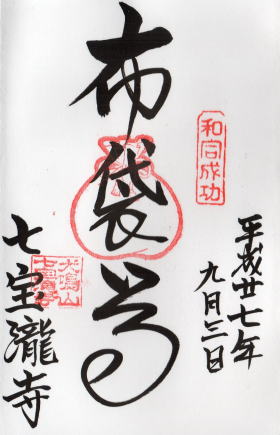 和合成功
平成廿七年
九月三日
布袋尊
犬鳴山
七宝瀧寺
七宝瀧寺